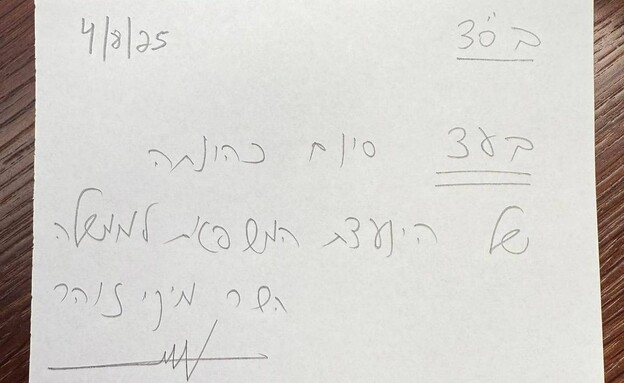 בס"ד 4/8/25
בעד סיום כהונתה
של היועצת המשפטית לממשלה
השר מיקי זוהר